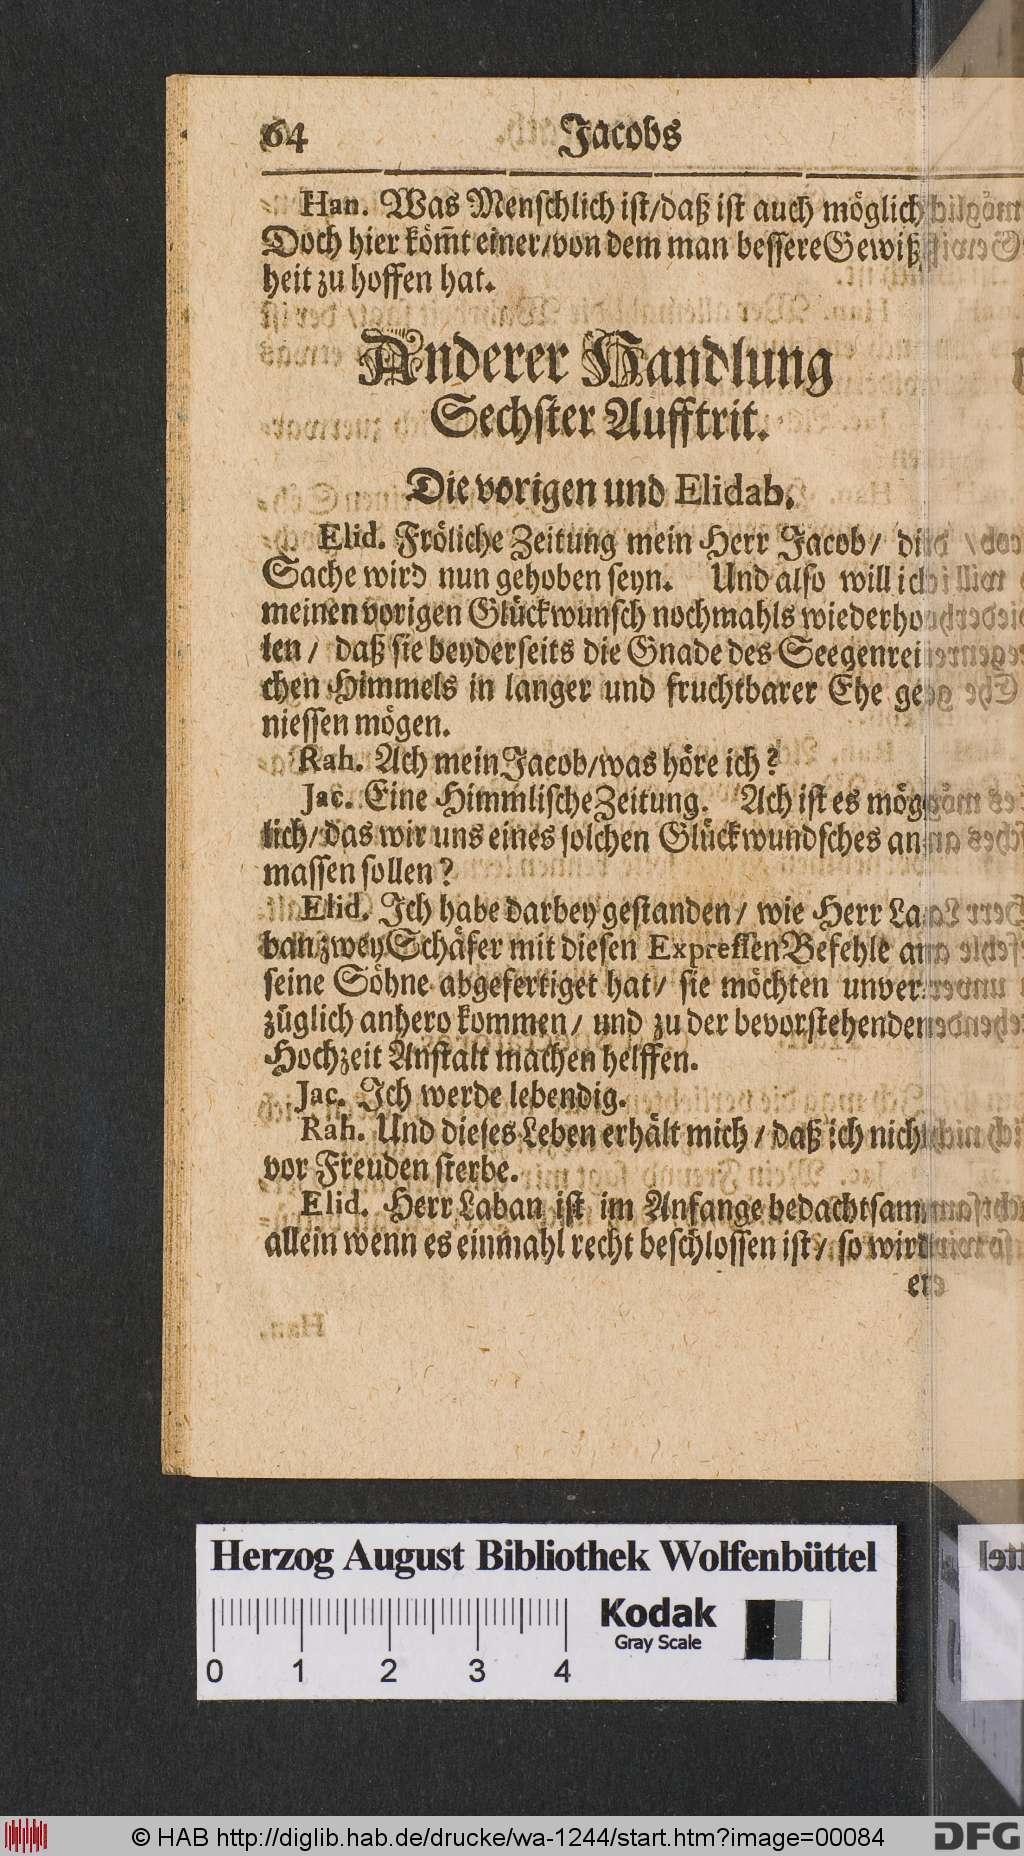 64 Jacobs
Han. Was Menschlich ist/daß ist auch möglich
Doch hier köm̄t einer/von dem man bessere Gewiß
heit zu hoffen hat.
Anderer Handlung
Sechster Aufftrit.
Die vorigen und Elidab.
Elid. Fröliche Zeitung mein Herr Jacob/ die
Sache wird nun gehoben seyn. Und also will ich
meinen vorigen Glückwunsch nochmahls wiederho
len/ daß sie beyderseits die Gnade des Seegenrei
chen Himmels in langer und fruchtbarer Ehe ge
niessen mögen.
Rah. Ach mein Jacob/was höre ich?
Jac. Eine Himmlische Zeitung. Ach ist es mög
lich/das wir uns eines solchen Glückwundsches an
massen sollen?
Elid. Ich habe darbey gestanden/ wie Herr La
ban zwey Schäfer mit diesen Expressen Befehle an
seine Söhne abgefertiget hat/ sie möchten unver
züglich anhero kommen/ und zu der bevorstehenden
Hochzeit Anstalt machen helffen.
Jac. Ich werde lebendig.
Rah. Und dieses Leben erhält mich/ daß ich nicht
vor Freuden sterbe.
Elid. Herr Laban ist im Anfange bedachtsam
allein wenn es einmahl recht beschlossen ist/ so wird
Herzog August Bibliothek Wolfenbüttel
Kodak
Gray Scale
0 1 2 3 4
© HAB http://diglib.hab.de/drucke/wa-1244/start.htm?image=00084 DFG